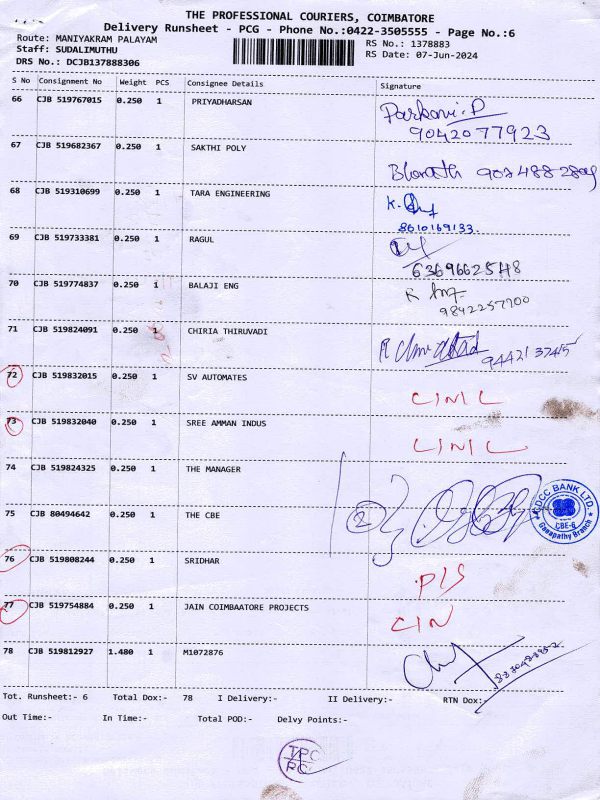 THE PROFESSIONAL COURIERS, COIMBATORE
Delivery Runsheet - PCG - Phone No.:0422-3505555 - Page No.:6
Route: MANIYAKRAM PALAYAM
Staff: SUDALIMUTHU
DRS No.: DCJB137888306
RS No.: 1378883
RS Date: 07-Jun-2024
S No Consignment No Weight PCS Consignee Details Signature
66 CJB 519767015 0.250 1 PRIYADHARSAN
9042077923
67 CJB 519682367 0.250 1 SAKTHI POLY
Bharath
68 CJB 519310699 0.250 1 TARA ENGINEERING
8610169133.
69 CJB 519733381 0.250 1 RAGUL
6369662548
70 CJB 519774837 0.250 1 BALAJI ENG
9842257700
71 CJB 519824091 0.250 1 CHIRIA THIRUVADI
72 CJB 519832015 0.250 1 SV AUTOMATES
73 CJB 519832040 0.250 1 SREE AMMAN INDUS
74 CJB 519824325 0.250 1 THE MANAGER
2
CDCC BANK LTD.
CBE-6
Ganapathy Branch
75 CJB 80494642 0.250 1 THE CBE
76 CJB 519808244 0.250 1 SRIDHAR P/S
77 CJB 519754884 0.250 1 JAIN COIMBAATORE PROJECTS CIN
78 CJB 519812927 1.480 1 M1072876
Tot. Runsheet:- 6 Total Dox:- 78 I Delivery:- II Delivery:- RTN Dox:-
Out Time:- In Time:- Total POD:- Delvy Points:-
TPC
PC